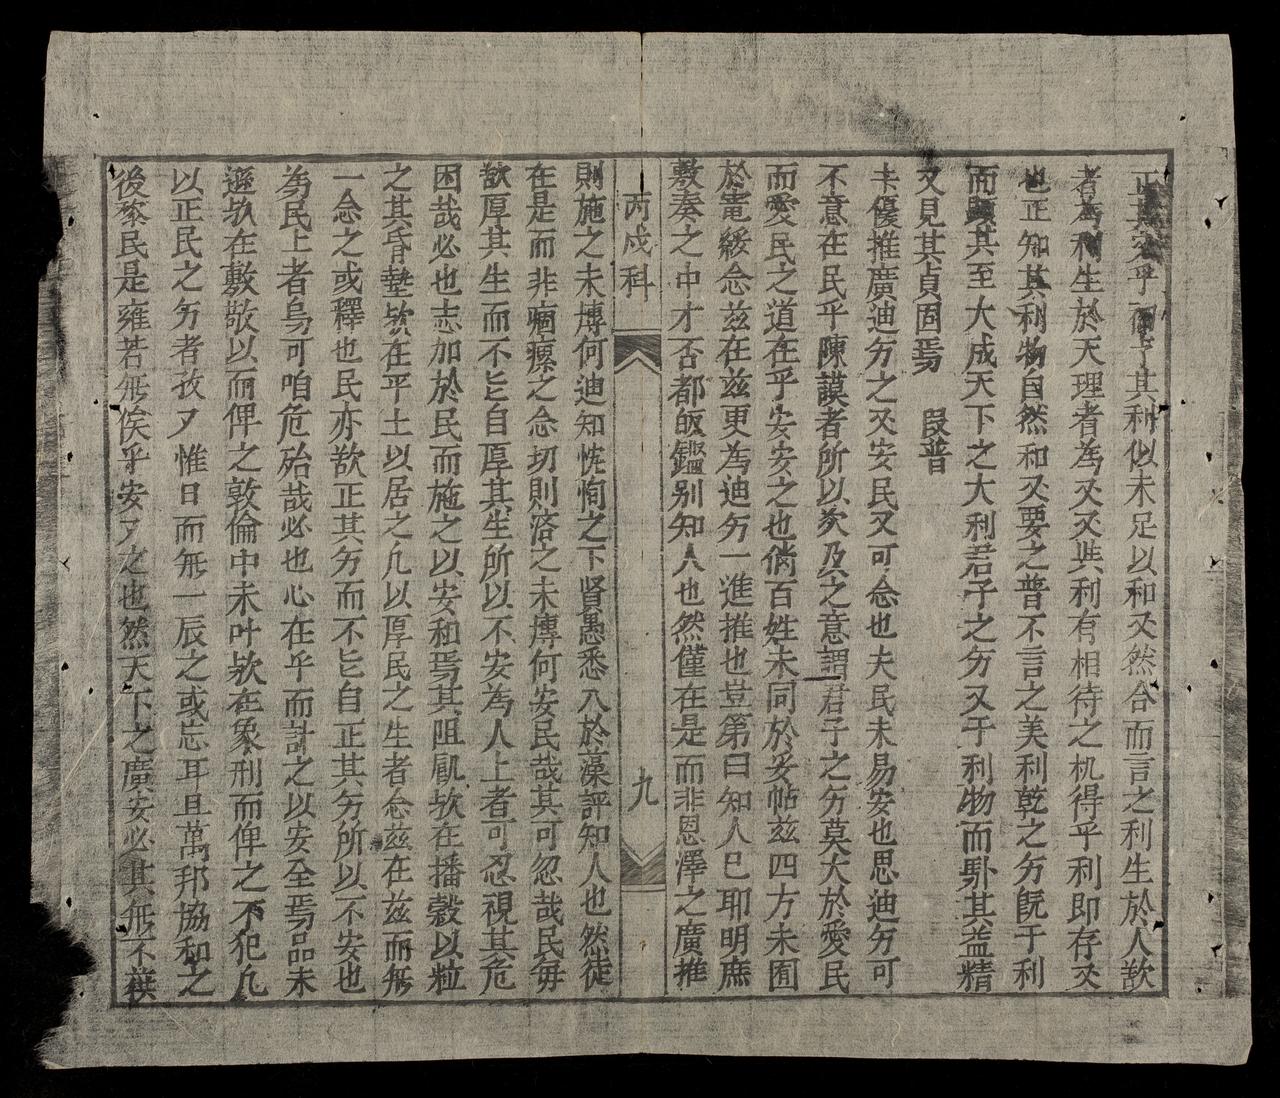 正其穷乎而亨其利似未足以和又然合而言之利生於人欲
者為利生於天理者為又又共利有相待之机得乎利即存又
也正知其利物自然和又要之普不言之美利乾之分既于利
而顕其至大成天下之大利君子之分又于利物而卧其益精
又見其貞固焉 段普
卡優推廣迪分之又安民又可念也夫民未易安也思迪分可
不意在民乎陳謨者所以次及之意謂君子之分莫大於愛民
而愛民之道在乎安安之也倘百姓未同於妥帖兹四方未囿
於寧綏念兹在兹更為迪分一進推也豈第曰知人已耶明庶
敷奏之中才否都皈鑑别知人也然僅在是而非恩澤之廣推
丙戍科 九
則施之未博何迪知忱恂之下賢愚悉入於藻評知人也然徒
在是而非痼瘝之念切則浴之未博何安民哉其可忽哉民毎
欲厚其生而不𠤎自厚其生所以不安為人上者可忍視其危
困哉必也志加於民而施之以安和焉其阻飢欤在播穀以粒
之其昏墊欤在平土以居之凡以厚民之生者念兹在兹而無
一念之或釋也民亦欲正其分而不𠤎自正其分所以不安也
為民上者烏可咱危殆哉必也心在乎而計之以安全焉品未
遜欤在敷敬以而俾之敦倫中未叶欤在象刑而俾之不犯凡
以正民之分者孜又惟日而無一辰之或忘耳且萬邦協和之
後黎民是雍若無俟乎安又之也然天下之廣安必其無不獲